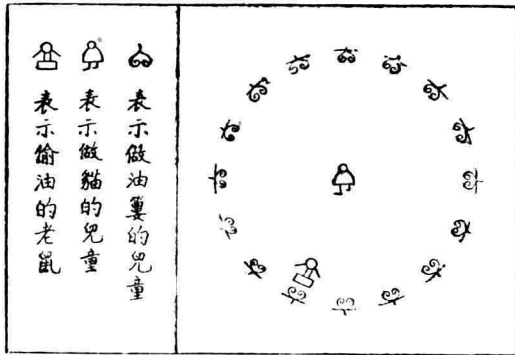 表示做油簍的兒童
表示做貓的兒童
表示偷油的老鼠